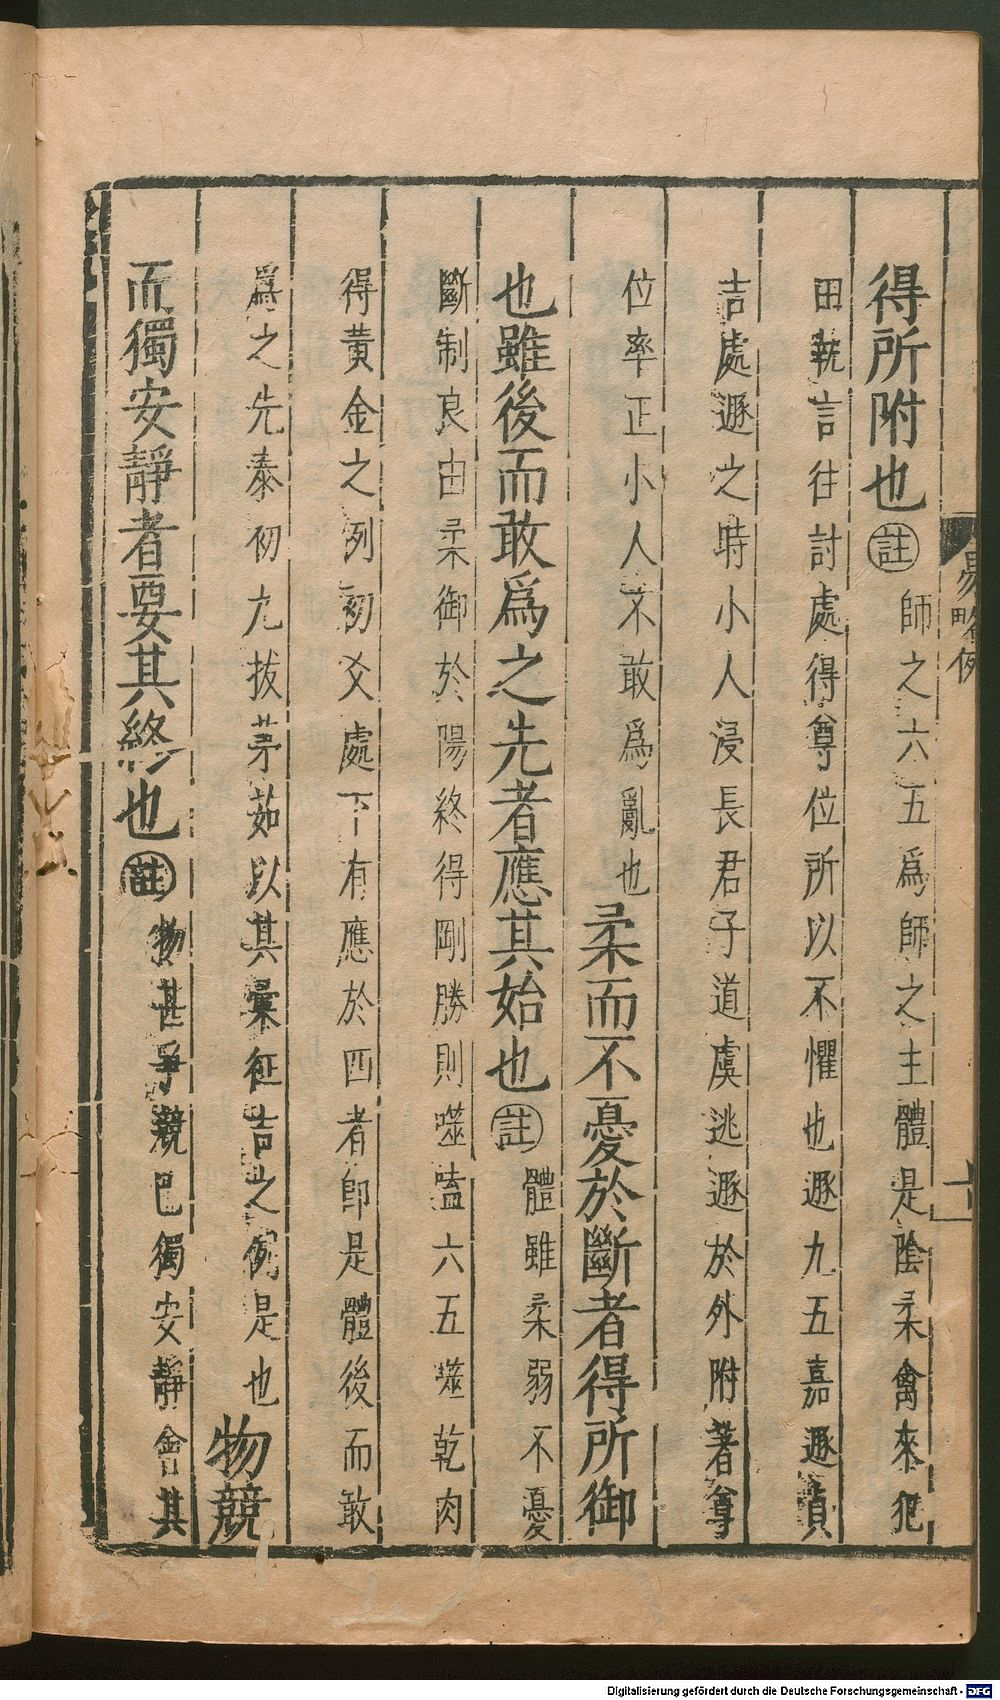 得所附也註師之六五爲師之主體是陰柔禽來犯
田執言往討處得尊位所以不懼也遯九五嘉遯貞
吉處遯之時小人浸長君子道虞逃遯於外附著尊
位率正小人不敢爲亂也柔而不憂於斷者得所御
也雖後而敢爲之先者應其始也註體雖柔弱不憂
斷制良由柔御於陽終得剛勝則噬嗑六五噬乾肉
得黃金之例初爻處下有應於四者卽是體後而敢
爲之先泰初九拔茅茹以其彙征吉之例是也物競
而獨安靜者要其終也註物甚爭競巳獨安靜會其
易略例
十
Digitalisierung gefördert durch die Deutsche Forschungsgemeinschaft - DFG